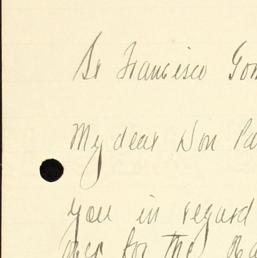 Sr Francisco Gon
My dear Don Pa
you in regard
for the